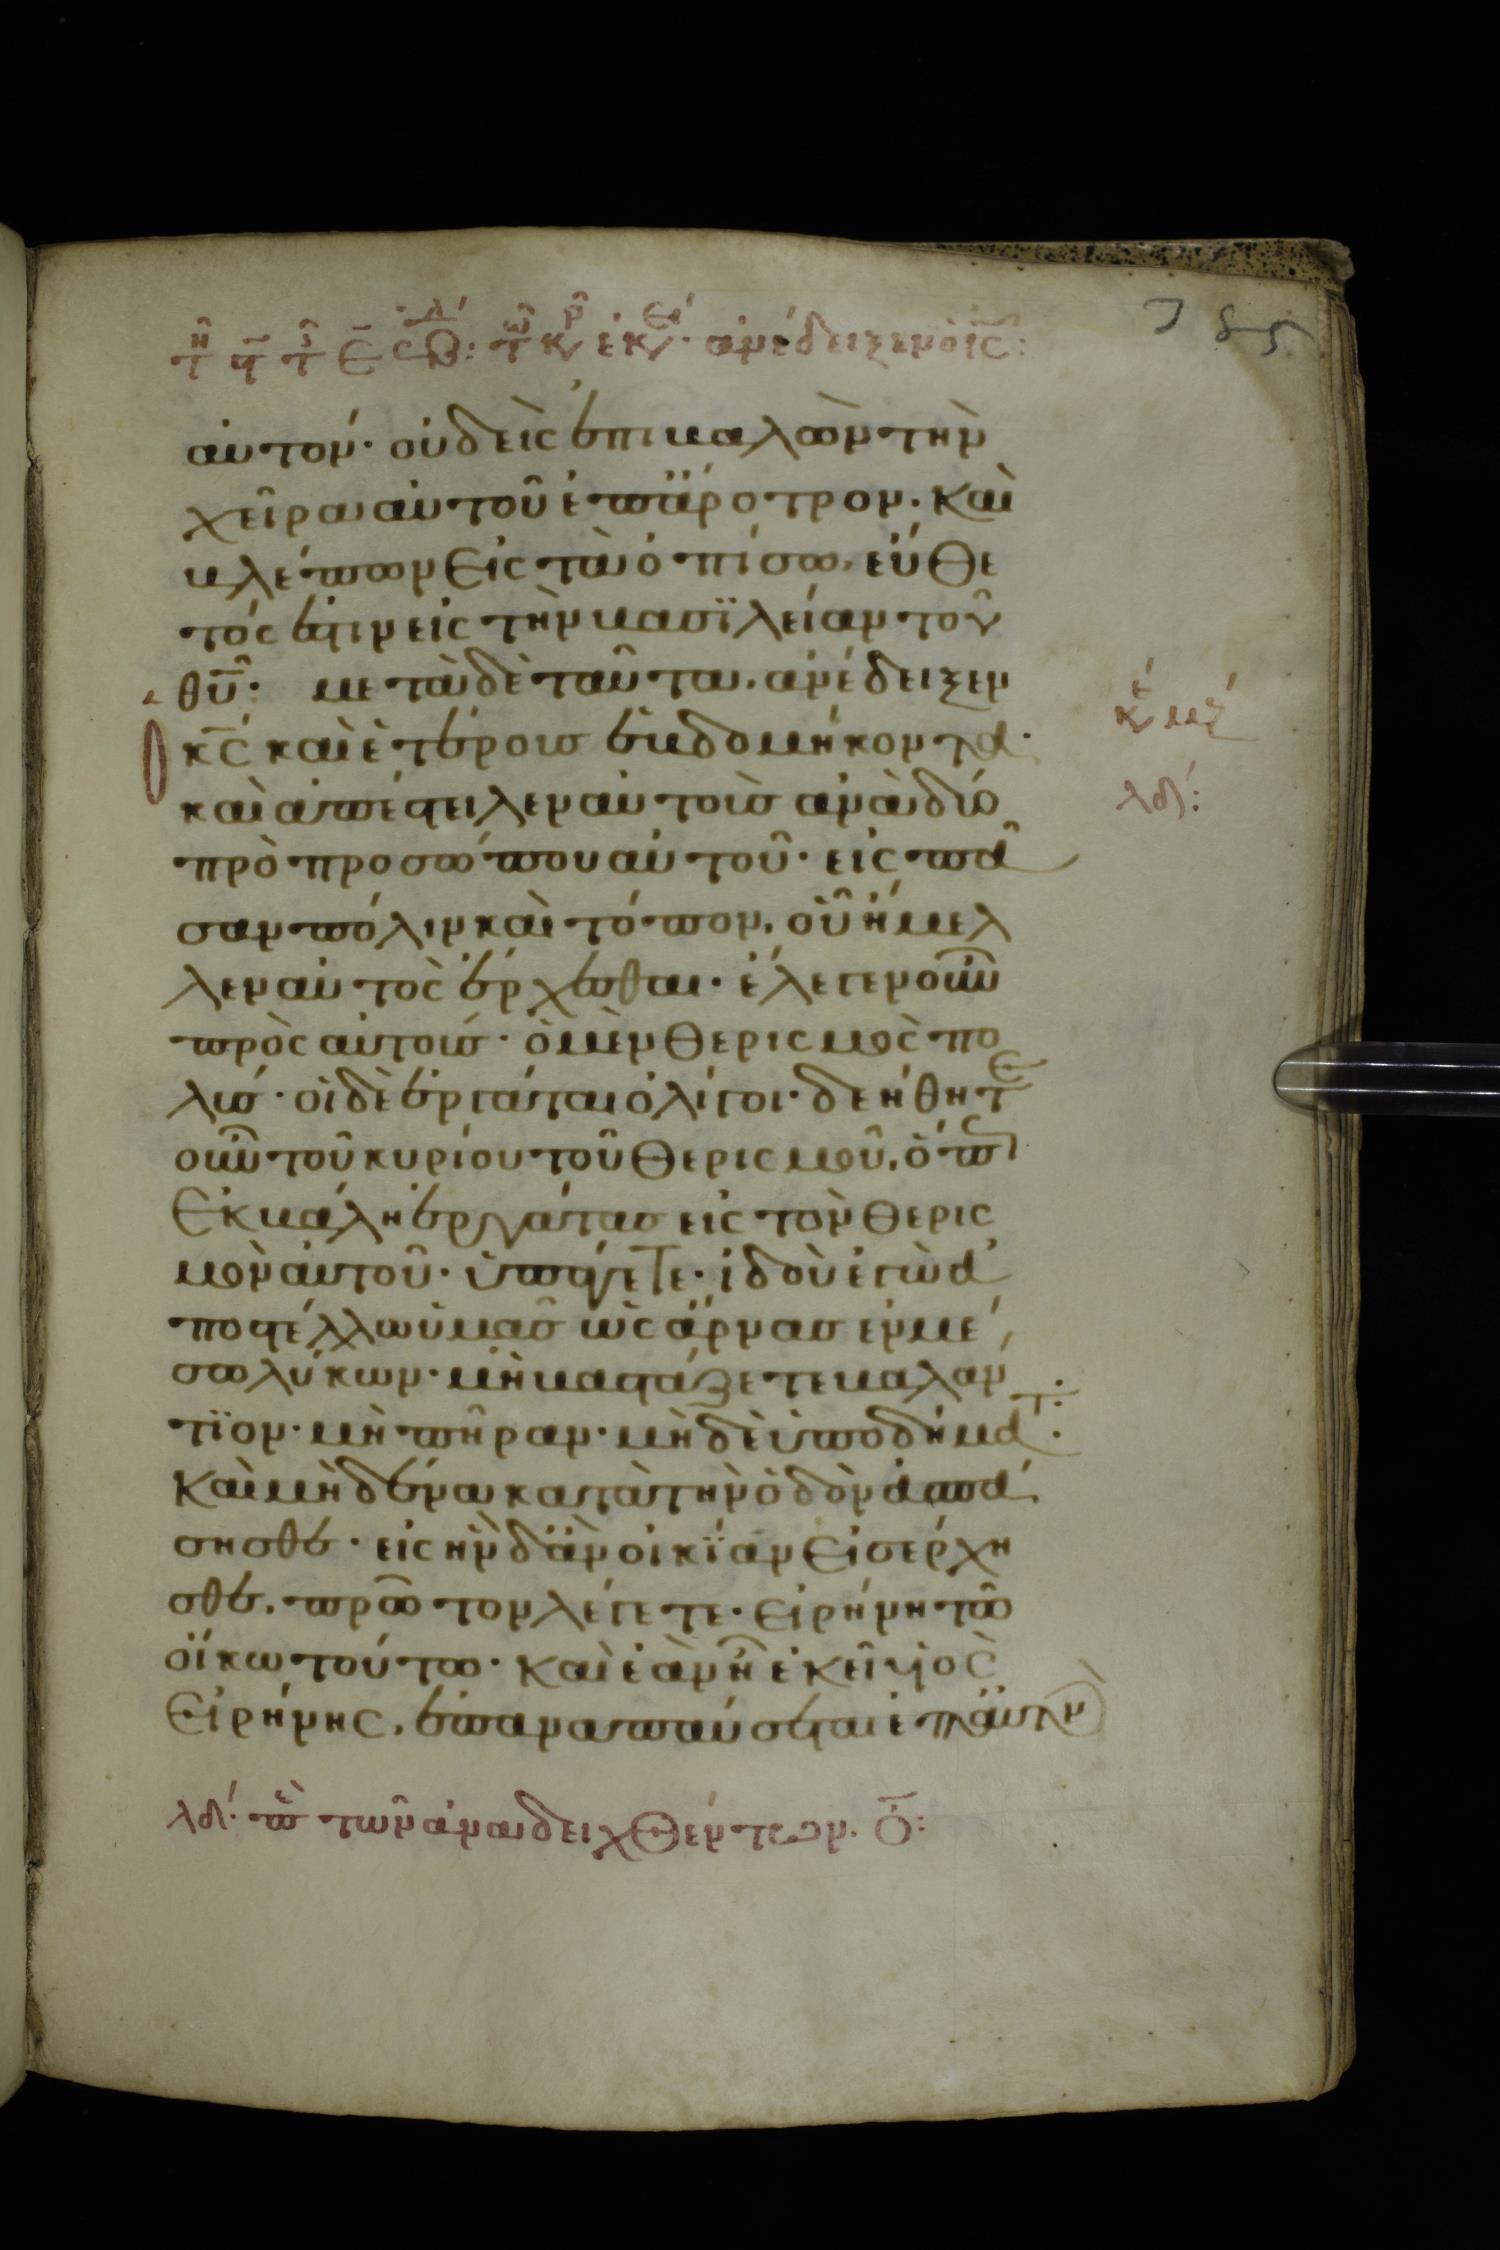 αὐτόν· οὐδεὶς ἐπιβαλὼν τὴν
χεῖρα αὐτοῦ ἐπ ἄροτρον· καὶ
βλέπων εἰς τὰ ὀπίσω, εὔθε
τός ἐστιν εἰς τὴν βασϊλείαν τοῦ
θυ̅· μετὰ δὲ ταῦτα, ἀνέδειξεν
κς̅ καὶ ἑτέρους ἑβδομήκοντα·
καὶ ἀπέστειλεν αὐτοὺς ἀνὰ δύο
πρὸ προσώπου αὐτοῦ· εἰς πᾶ
σαν πόλιν καὶ τόπον, οὗ ἤμελ
λεν αὐτὸς ἔρχεσθαι· ἔλεγεν οὖν
πρὸς αὐτούς· ὁ μὲν θερισμὸς πο
λύς· οἱ δὲ ἐργάται ὀλίγοι· δεήθητε
οὖν τοῦ κυρίου τοῦ θερισμοῦ, ὅπως
ἐκβάλη ἐργάτας εἰς τὸν θερις
μὸν αὐτοῦ· ὑπάγετε· ἰδοὺ ἐγὼ ἀ
ποστέλλω ὑμᾶς ὡς ἄρνας ἐν μέ
σω λύκων· μὴ βαστάζετε βαλάν
τϊον· μὴ πήραν· μὴ δὲ ὑποδήματ·
καὶ μηδένα κατὰ τὴν ὁδὸν ἀσπά
σησθε· εἰς ἣν δ ἂν οἰκίαν εἰσέρχη
σθε, πρῶτον λέγετε· εἰρήνη τῶ
οἴκω τούτω· καὶ ἐὰν ἦ ἐκεῖ υἱὸς
εἰρήνης, ἐπαναπαύσεται ἐπ αὐτὸν
λδ· πε τῶν ἀναδειχθέντων· ο̅: